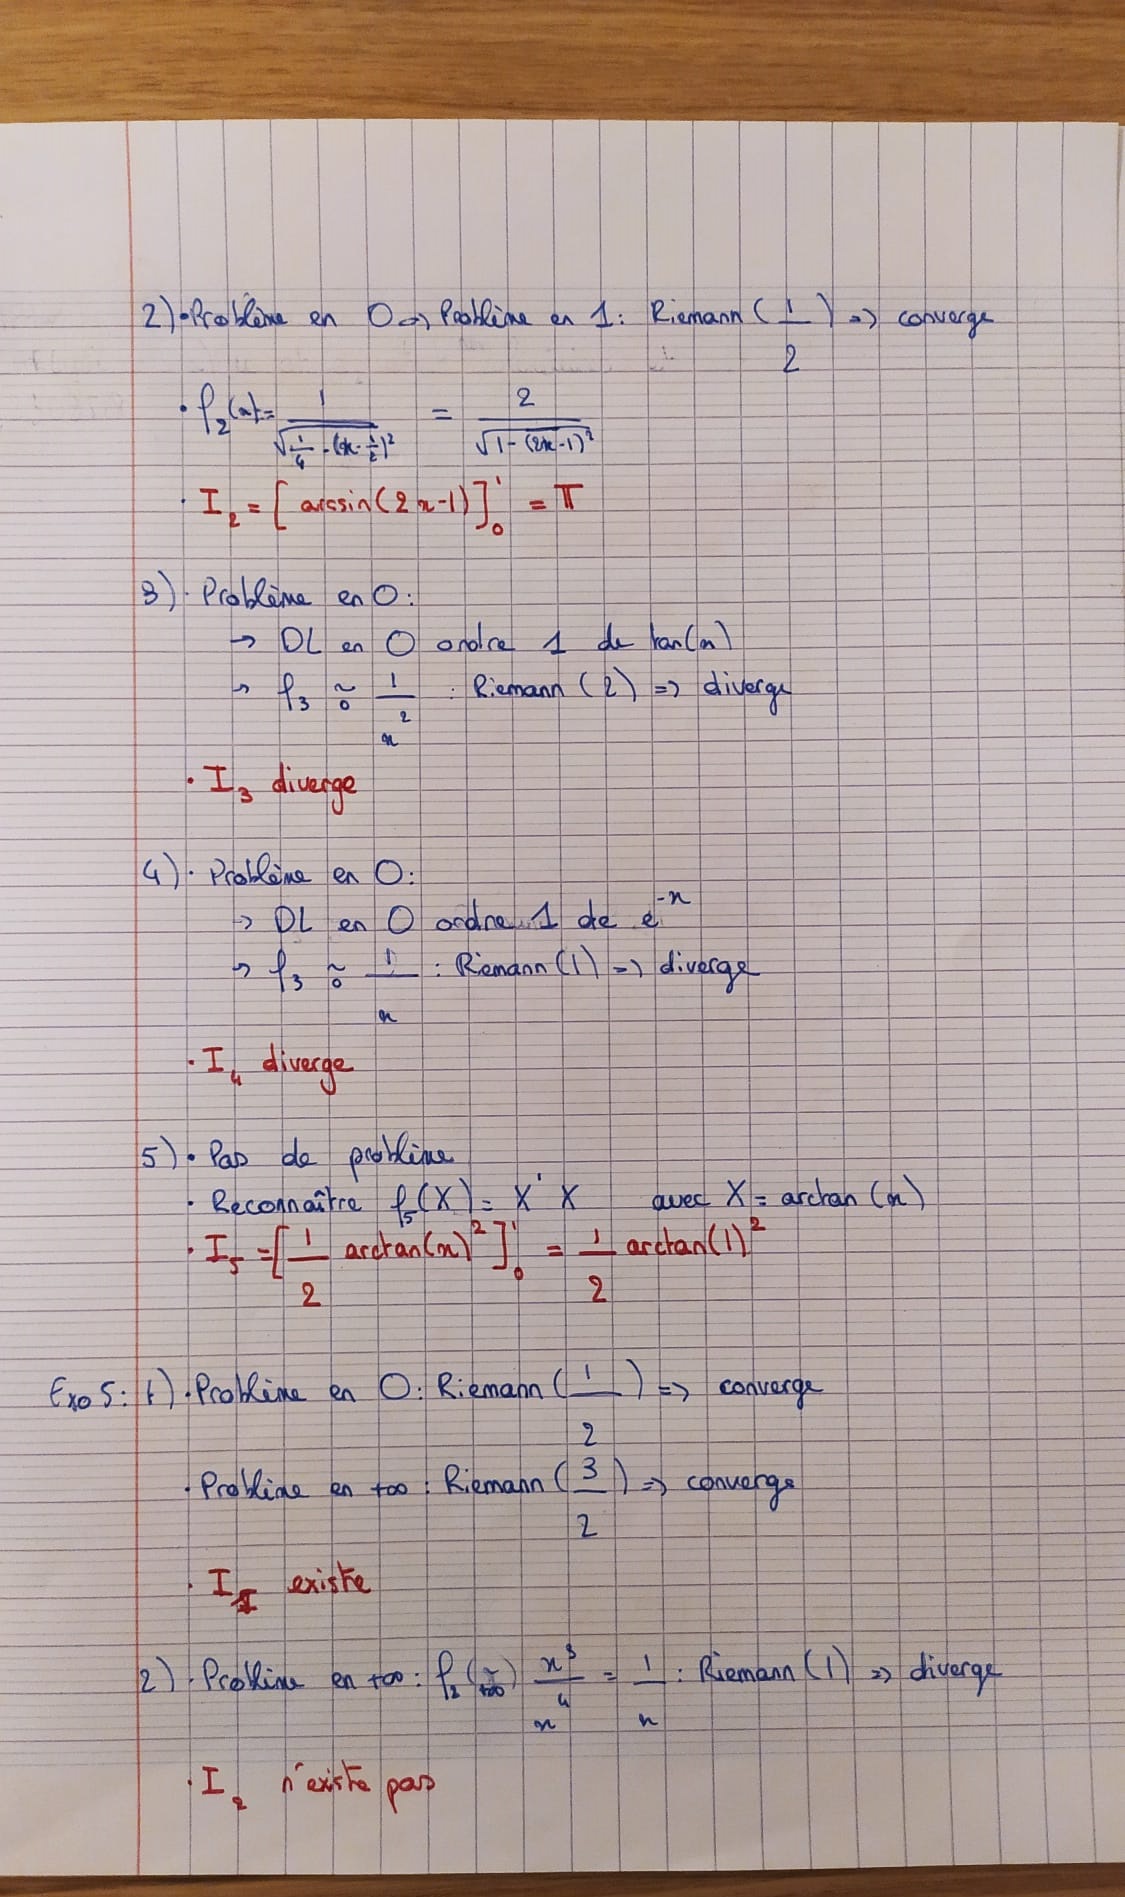 2) • Problème en 0 → Problème en 1 : Riemann (1/2) => converge
• f₂(x) = 1/√(1/4 - (x - 1/2)²) = 2/√(1 - (2x-1)²)
• I₂ = [arcsin(2x-1)]₀¹ = π
3) • Problème en 0 :
→ DL en 0 ordre 1 de tan(x)
→ f₃ ~₀ 1/x² : Riemann (2) => diverge
• I₃ diverge
4) • Problème en 0 :
→ DL en 0 ordre 1 de e⁻ˣ
→ f₃ ~₀ 1/x : Riemann (1) => diverge
• I₄ diverge
5) • Pas de problème
• Reconnaître f₅(X) = X' X avec X = arctan(x)
• I₅ = [1/2 arctan(x)²]₀¹ = 1/2 arctan(1)²
Exo 5 : 1) • Problème en 0 : Riemann (1/2) => converge
• Problème en +∞ : Riemann (3/2) => converge
• I₁ existe
2) • Problème en +∞ : f₂ (~+∞) x³/x⁴ = 1/x : Riemann (1) => diverge
• I₂ n'existe pas